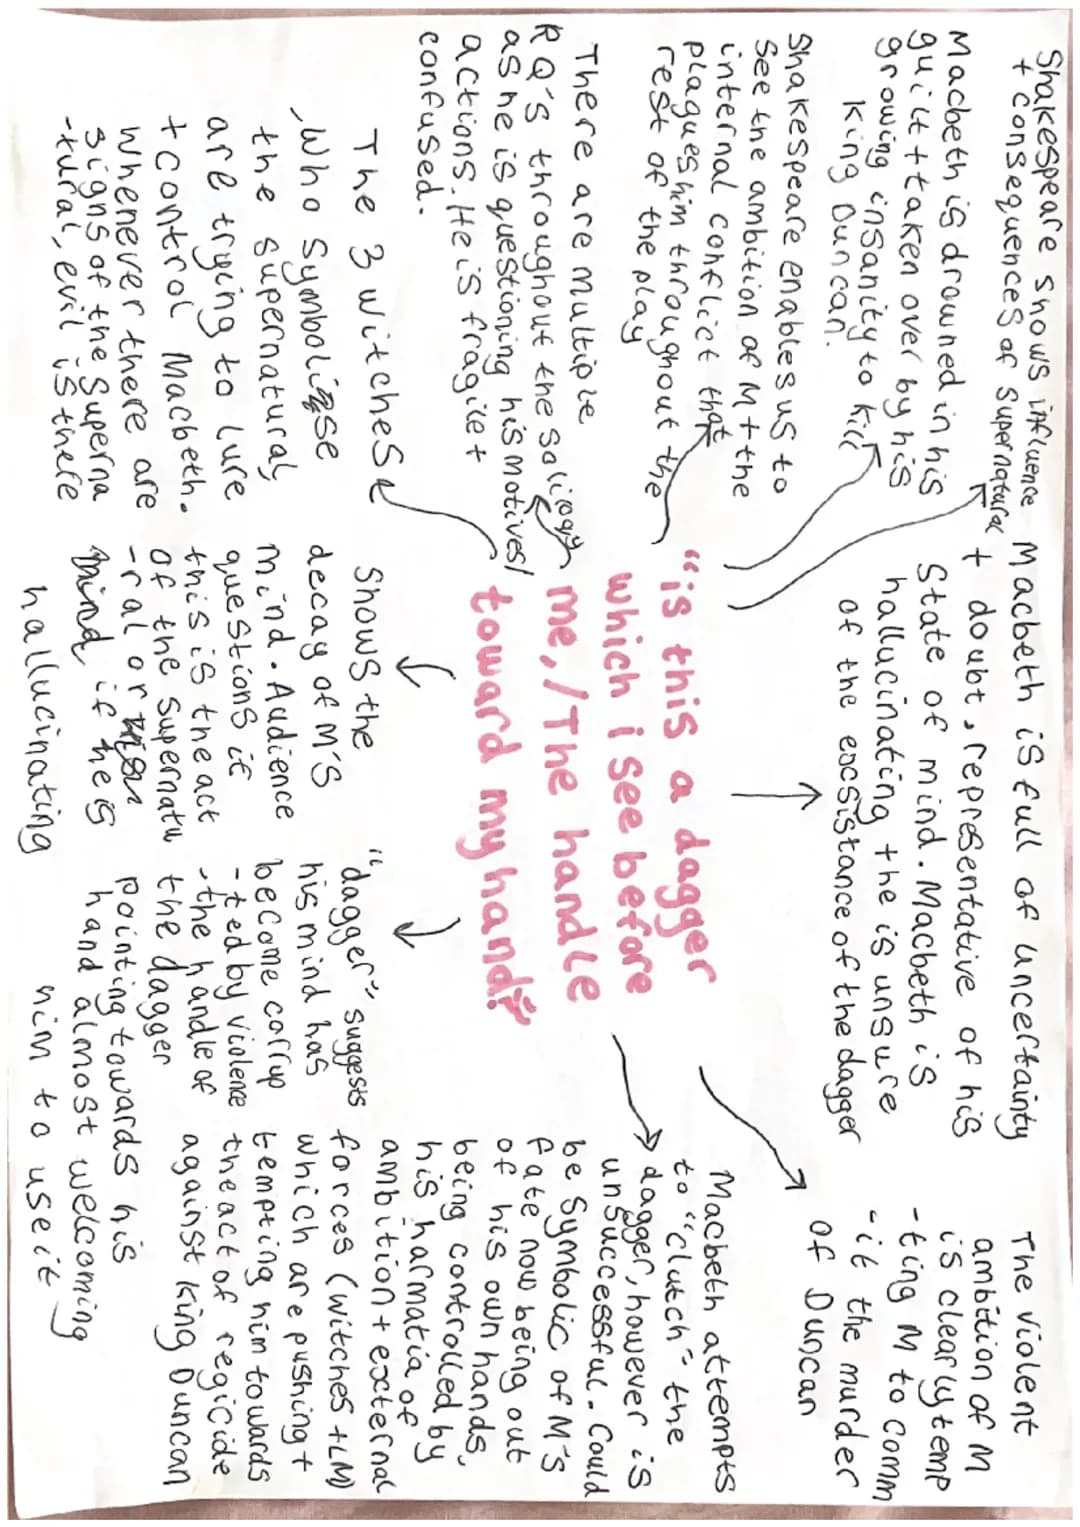 Shakespeare shows influence
+ consequences of supernatural
Macbeth is drowned in his
guilt + taken over by his
growing insanity to kill
King Duncan.
Shakespeare enables us to
see the ambition of M + the
internal conflict that
plagues him throughout the
rest of the play
There are multiple
RQ's throughout the
as he is questioning his motives/
actions. He is fragile +
confused.
The 3 witches
, who symbolise
the supernatural,
are trying to lure
+ control Macbeth.
Whenever there are
signs of the superna
-tural, evil is there
Macbeth is full of uncertainty
+ doubt, representative of his
state of mind. Macbeth is
hallucinating + he is unsure
of the excistance of the dagger
"is this a dagger
which i see before
me,/The handle
toward my hand?"
Shows the
decay of M's
mind. Audience
questions if
this is the act
of the supernatu
-ral or
mind if he is
hallucinating
"dagger" suggests
his mind has
become corrup
-ted by violence
-the handle of
the dagger
pointing towards his
hand almost welcoming
him to use it
The violent
ambition of M
is clearly temp
-ting M to comm
-it the murder
of Duncan
Macbeth attempts
to "clutch" the
dagger, however is
unsuccessful. Could
be symbolic of M's
fate now being out
of his own hands,
being controlled by
his harmatia of
ambition + external
forces (witches + LM)
which are pushing +
tempting him towards
the act of regicide
against King Duncan